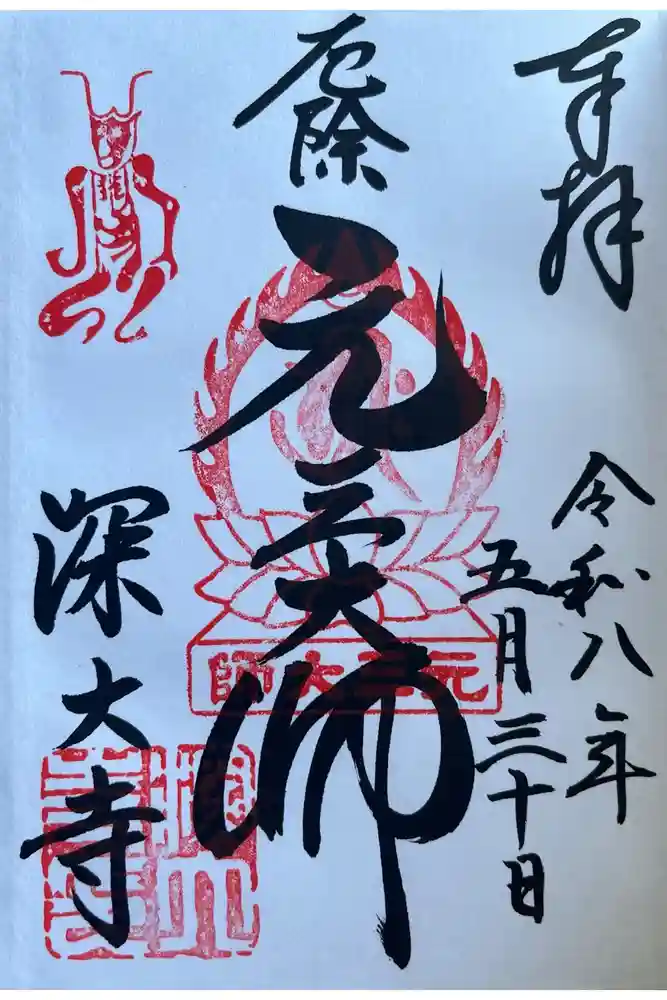 奉拝
令和八年
五月三十日
厄除
元三大師
元三大師
深大寺